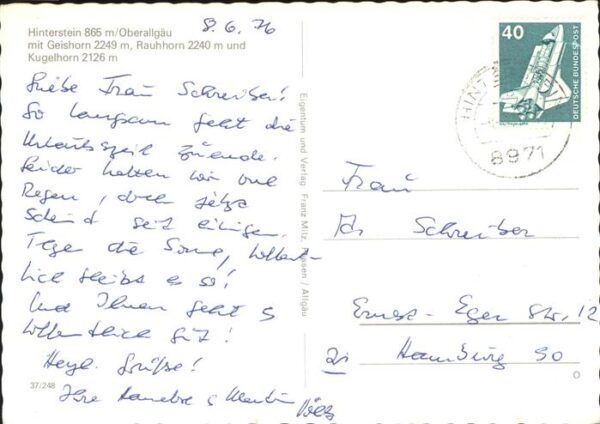 8.6.76
Hinterstein 865 m/Oberallgäu
mit Geishorn 2249 m, Rauhhorn 2240 m und
Kugelhorn 2126 m
Liebe Frau Schreiber!
So langsam geht die
Urlaubszeit zuende.
Leider hatten wir viel
Regen, doch jetzt
scheint seit einigen
Tage die Sonne, hoffent-
lich bleibt es so!
Und Ihnen geht s
hoffentlich gut!
Herzl. Grüße!
Ihre & Martin
37/248
Eigentum und Verlag Franz Milz, Füssen / Allgäu
40
DEUTSCHE BUNDESPOST
HINT
8971
Frau
Schreiber
Ernst - Eger Str. 12
Hamburg 90